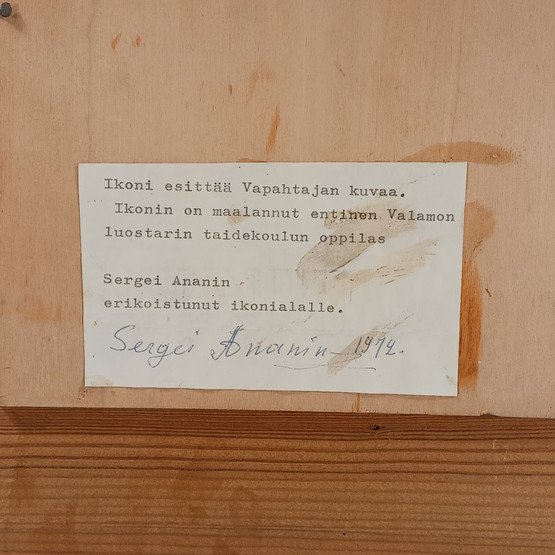 Ikoni esittää Vapahtajan kuvaa.
Ikonin on maalannut entinen Valamon
luostarin taidekoulun oppilas
Sergei Ananin
erikoistunut ikonialalle.
Sergei Ananin – 1972.